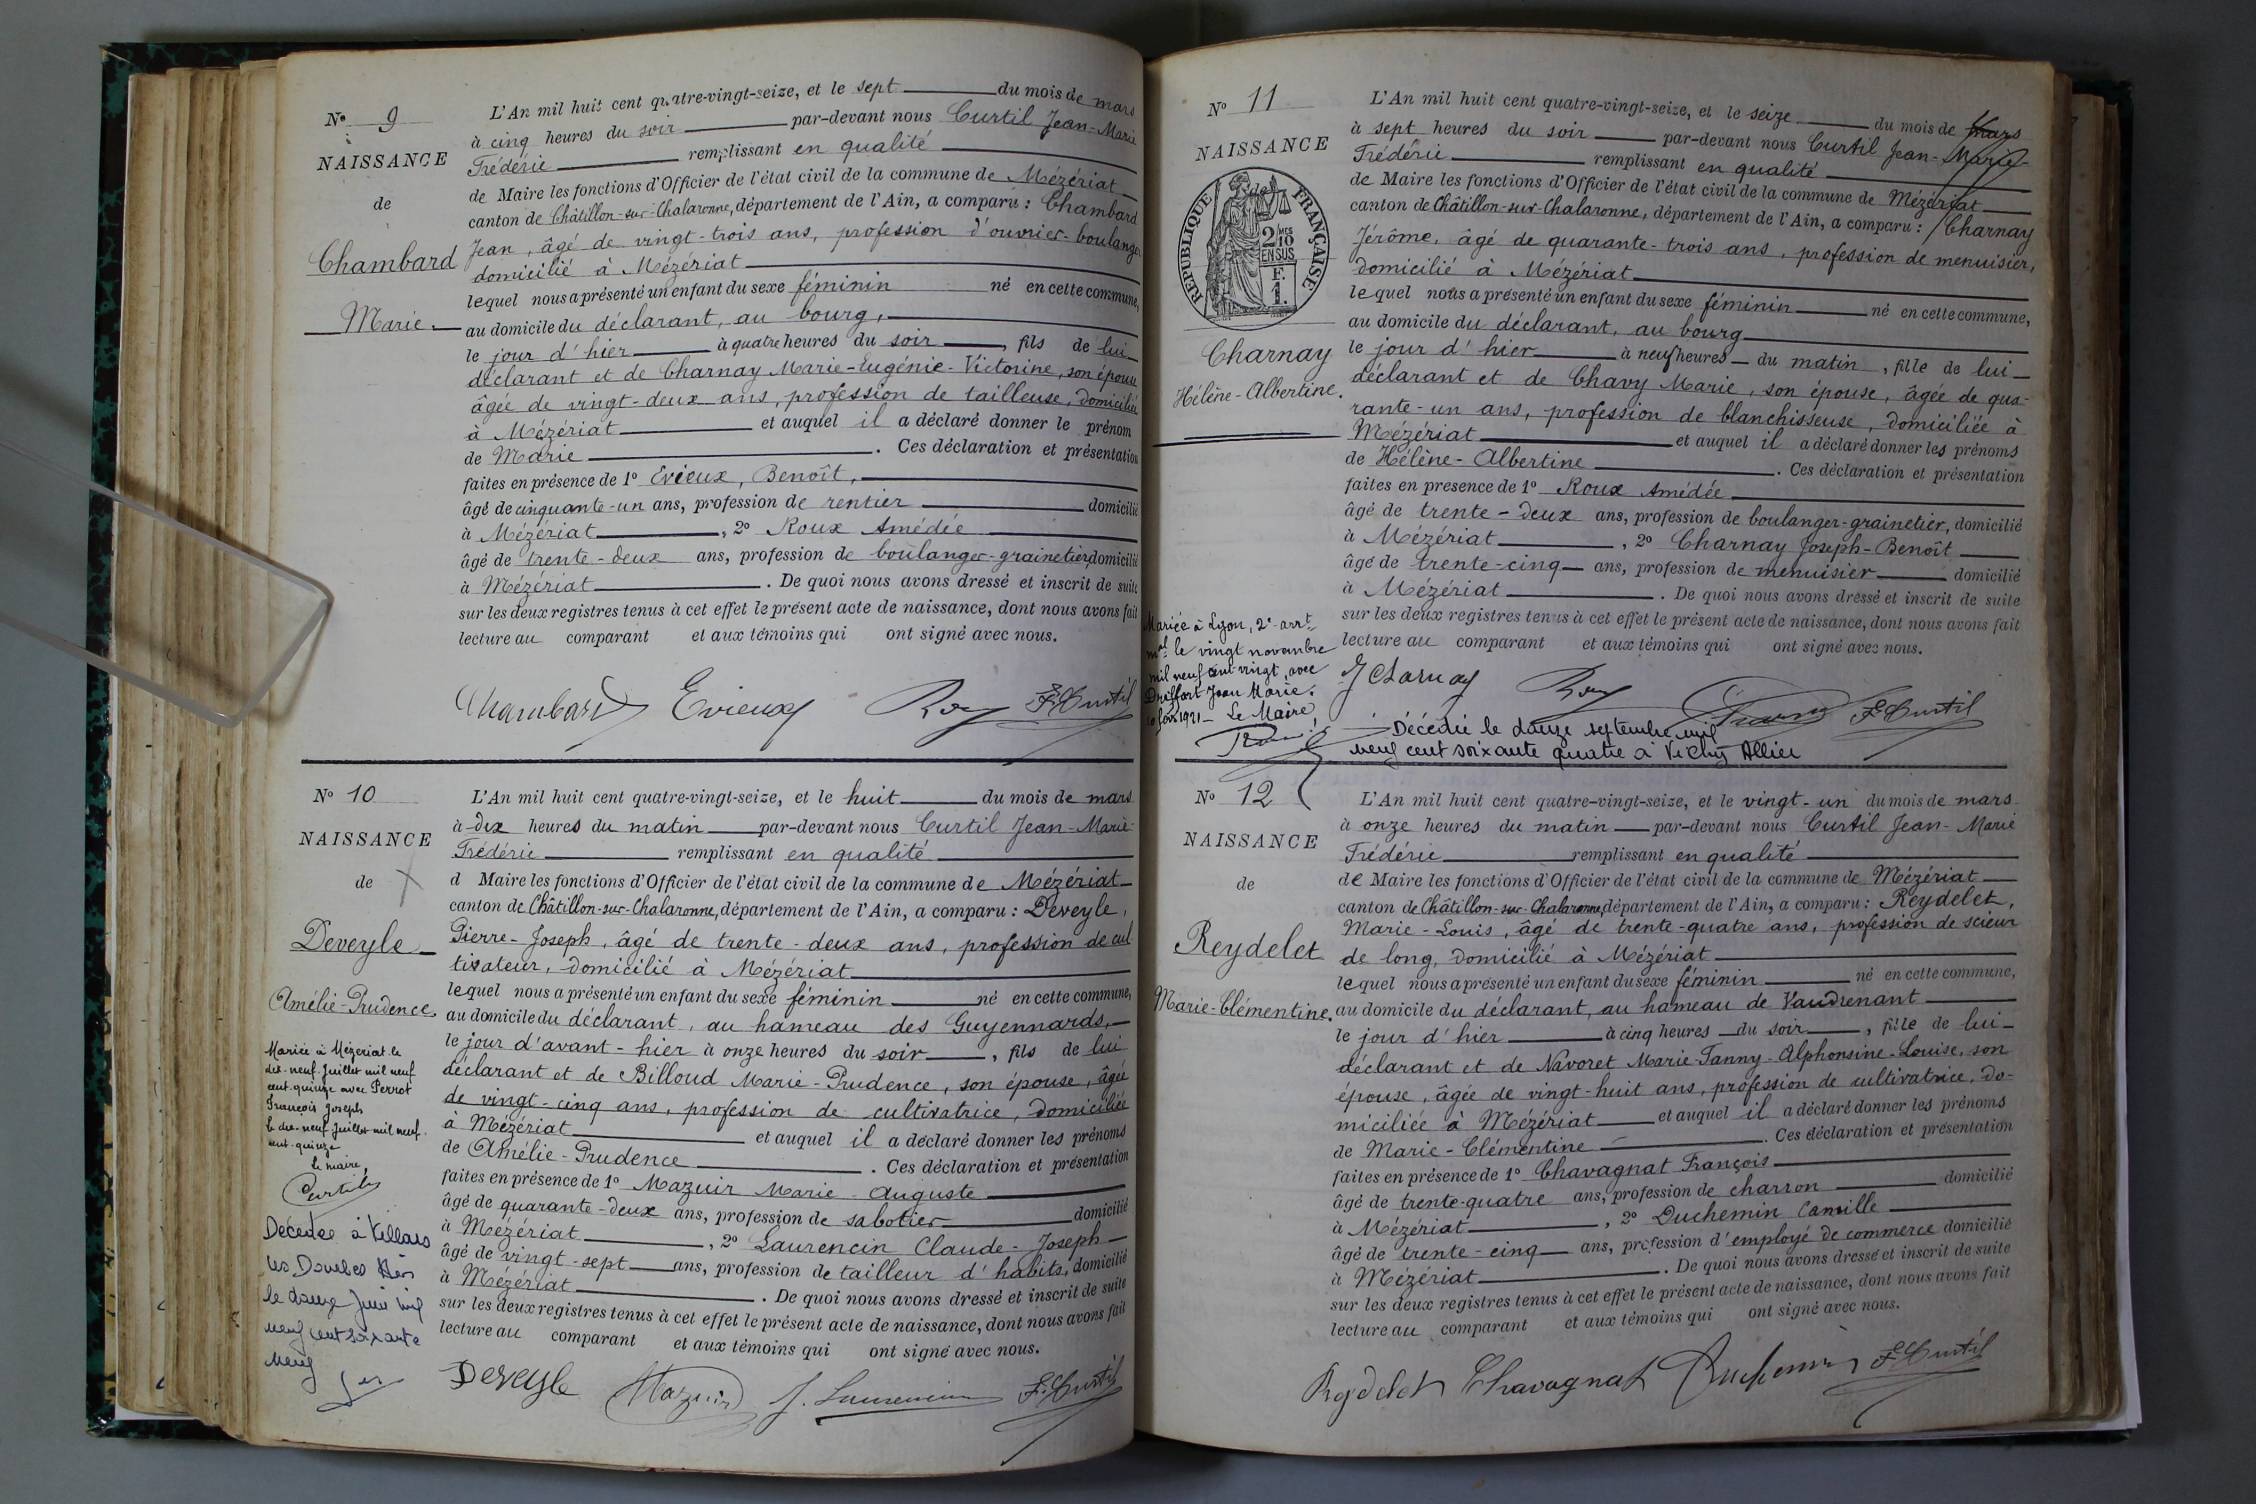 Nº 9
NAISSANCE
de
Chambard
Marie.
L'An mil huit cent quatre-vingt-seize, et le sept du mois de mars
à cinq heures du soir par-devant nous Curtil Jean-Marie
Frédéric remplissant en qualité
de Maire les fonctions d'Officier de l'état civil de la commune de Mézériat
canton de Châtillon-sur-Chalaronne, département de l'Ain, a comparu : Chambard
Jean, âgé de vingt-trois ans, profession d'ouvrier-boulanger
domicilié à Mézériat
lequel nous a présenté un enfant du sexe féminin né en cette commune,
au domicile du déclarant, au bourg,
le jour d'hier à quatre heures du soir, fils de lui
déclarant et de Charnay Marie-Eugénie-Victorine, son épouse
âgée de vingt-deux ans, profession de tailleuse, domiciliée
à Mézériat et auquel il a déclaré donner le prénom
de Marie. Ces déclaration et présentation
faites en présence de 1º Evieux, Benoît,
âgé de cinquante-un ans, profession de rentier domicilié
à Mézériat, 2º Roux Amédée
âgé de trente-deux ans, profession de boulanger-grainetier, domicilié
à Mézériat. De quoi nous avons dressé et inscrit de suite
sur les deux registres tenus à cet effet le présent acte de naissance, dont nous avons fait
lecture au comparant et aux témoins qui ont signé avec nous.
Chambard Evieux Roux F. Curtil
Nº 10
NAISSANCE
de
Deveyle
Amélie-Prudence
Mariée à Mézériat le
dix-neuf Juillet mil neuf
cent quinze avec Perrot
François Joseph
Le dix-neuf Juillet mil neuf
cent quinze
Le maire
Curtil
Décédée à Villars
les Dombes Ain
le douze Juin mil
neuf cent soixante
neuf
L'An mil huit cent quatre-vingt-seize, et le huit du mois de mars
à dix heures du matin par-devant nous Curtil Jean-Marie-
Frédéric remplissant en qualité
d Maire les fonctions d'Officier de l'état civil de la commune de Mézériat
canton de Châtillon-sur-Chalaronne, département de l'Ain, a comparu : Deveyle,
Pierre-Joseph, âgé de trente-deux ans, profession de cul
tivateur, domicilié à Mézériat
lequel nous a présenté un enfant du sexe féminin né en cette commune,
au domicile du déclarant, au hameau des Guyennards,
le jour d'avant-hier à onze heures du soir, fils de lui
déclarant et de Billoud Marie-Prudence, son épouse, âgée
de vingt-cinq ans, profession de cultivatrice, domiciliée
à Mézériat et auquel il a déclaré donner les prénoms
de Amélie-Prudence. Ces déclaration et présentation
faites en présence de 1º Mazuir Marie-Auguste
âgé de quarante-deux ans, profession de sabotier domicilié
à Mézériat, 2º Laurencin Claude-Joseph
âgé de vingt-sept ans, profession de tailleur d'habits, domicilié
à Mézériat. De quoi nous avons dressé et inscrit de suite
sur les deux registres tenus à cet effet le présent acte de naissance, dont nous avons fait
lecture au comparant et aux témoins qui ont signé avec nous.
Deveyle Mazuir J. Laurencin F. Curtil
Nº 11
NAISSANCE
RÉPUBLIQUE FRANÇAISE
2 MES
10
EN SUS
F.
1.
Charnay
Hélène-Albertine.
Mariée à Lyon, 2e arrt
mal le vingt novembre
mil neuf cent vingt, avec
Jean Marie.
1921 - Le Maire,
L'An mil huit cent quatre-vingt-seize, et le seize du mois de mars
à sept heures du soir par-devant nous Curtil Jean-Marie
Frédéric remplissant en qualité
de Maire les fonctions d'Officier de l'état civil de la commune de Mézériat
canton de Châtillon-sur-Chalaronne, département de l'Ain, a comparu : Charnay
Jérôme, âgé de quarante-trois ans, profession de menuisier,
domicilié à Mézériat
lequel nous a présenté un enfant du sexe féminin né en cette commune,
au domicile du déclarant, au bourg
le jour d'hier à neuf heures du matin, fille de lui
déclarant et de Chavy Marie, son épouse, âgée de qua-
rante-un ans, profession de blanchisseuse, domiciliée à
Mézériat et auquel il a déclaré donner les prénoms
de Hélène-Albertine. Ces déclaration et présentation
faites en présence de 1º Roux Amédée
âgé de trente-deux ans, profession de boulanger-grainetier, domicilié
à Mézériat, 2º Charnay Joseph-Benoît
âgé de trente-cinq ans, profession de menuisier domicilié
à Mézériat. De quoi nous avons dressé et inscrit de suite
sur les deux registres tenus à cet effet le présent acte de naissance, dont nous avons fait
lecture au comparant et aux témoins qui ont signé avec nous.
J Charnay Roux F. Curtil
Décédée le douze septembre mil
neuf cent soixante quatre à Vichy Allier
Nº 12
NAISSANCE
de
Reydelet
Marie-Clémentine.
L'An mil huit cent quatre-vingt-seize, et le vingt-un du mois de mars
à onze heures du matin par-devant nous Curtil Jean-Marie
Frédéric remplissant en qualité
de Maire les fonctions d'Officier de l'état civil de la commune de Mézériat
canton de Châtillon-sur-Chalaronne, département de l'Ain, a comparu : Reydelet,
Marie-Louis, âgé de trente-quatre ans, profession de scieur
de long, domicilié à Mézériat
lequel nous a présenté un enfant du sexe féminin né en cette commune,
au domicile du déclarant, au hameau de Vaudrenant
le jour d'hier à cinq heures du soir, fille de lui
déclarant et de Navoret Marie-Fanny-Alphonsine-Louise, son
épouse, âgée de vingt-huit ans, profession de cultivatrice, do-
miciliée à Mézériat et auquel il a déclaré donner les prénoms
de Marie-Clémentine. Ces déclaration et présentation
faites en présence de 1º Chavagnat François
âgé de trente-quatre ans, profession de charron domicilié
à Mézériat, 2º Duchemin Camille
âgé de trente-cinq ans, profession d'employé de commerce domicilié
à Mézériat. De quoi nous avons dressé et inscrit de suite
sur les deux registres tenus à cet effet le présent acte de naissance, dont nous avons fait
lecture au comparant et aux témoins qui ont signé avec nous.
Reydelet Chavagnat Duchemin F. Curtil